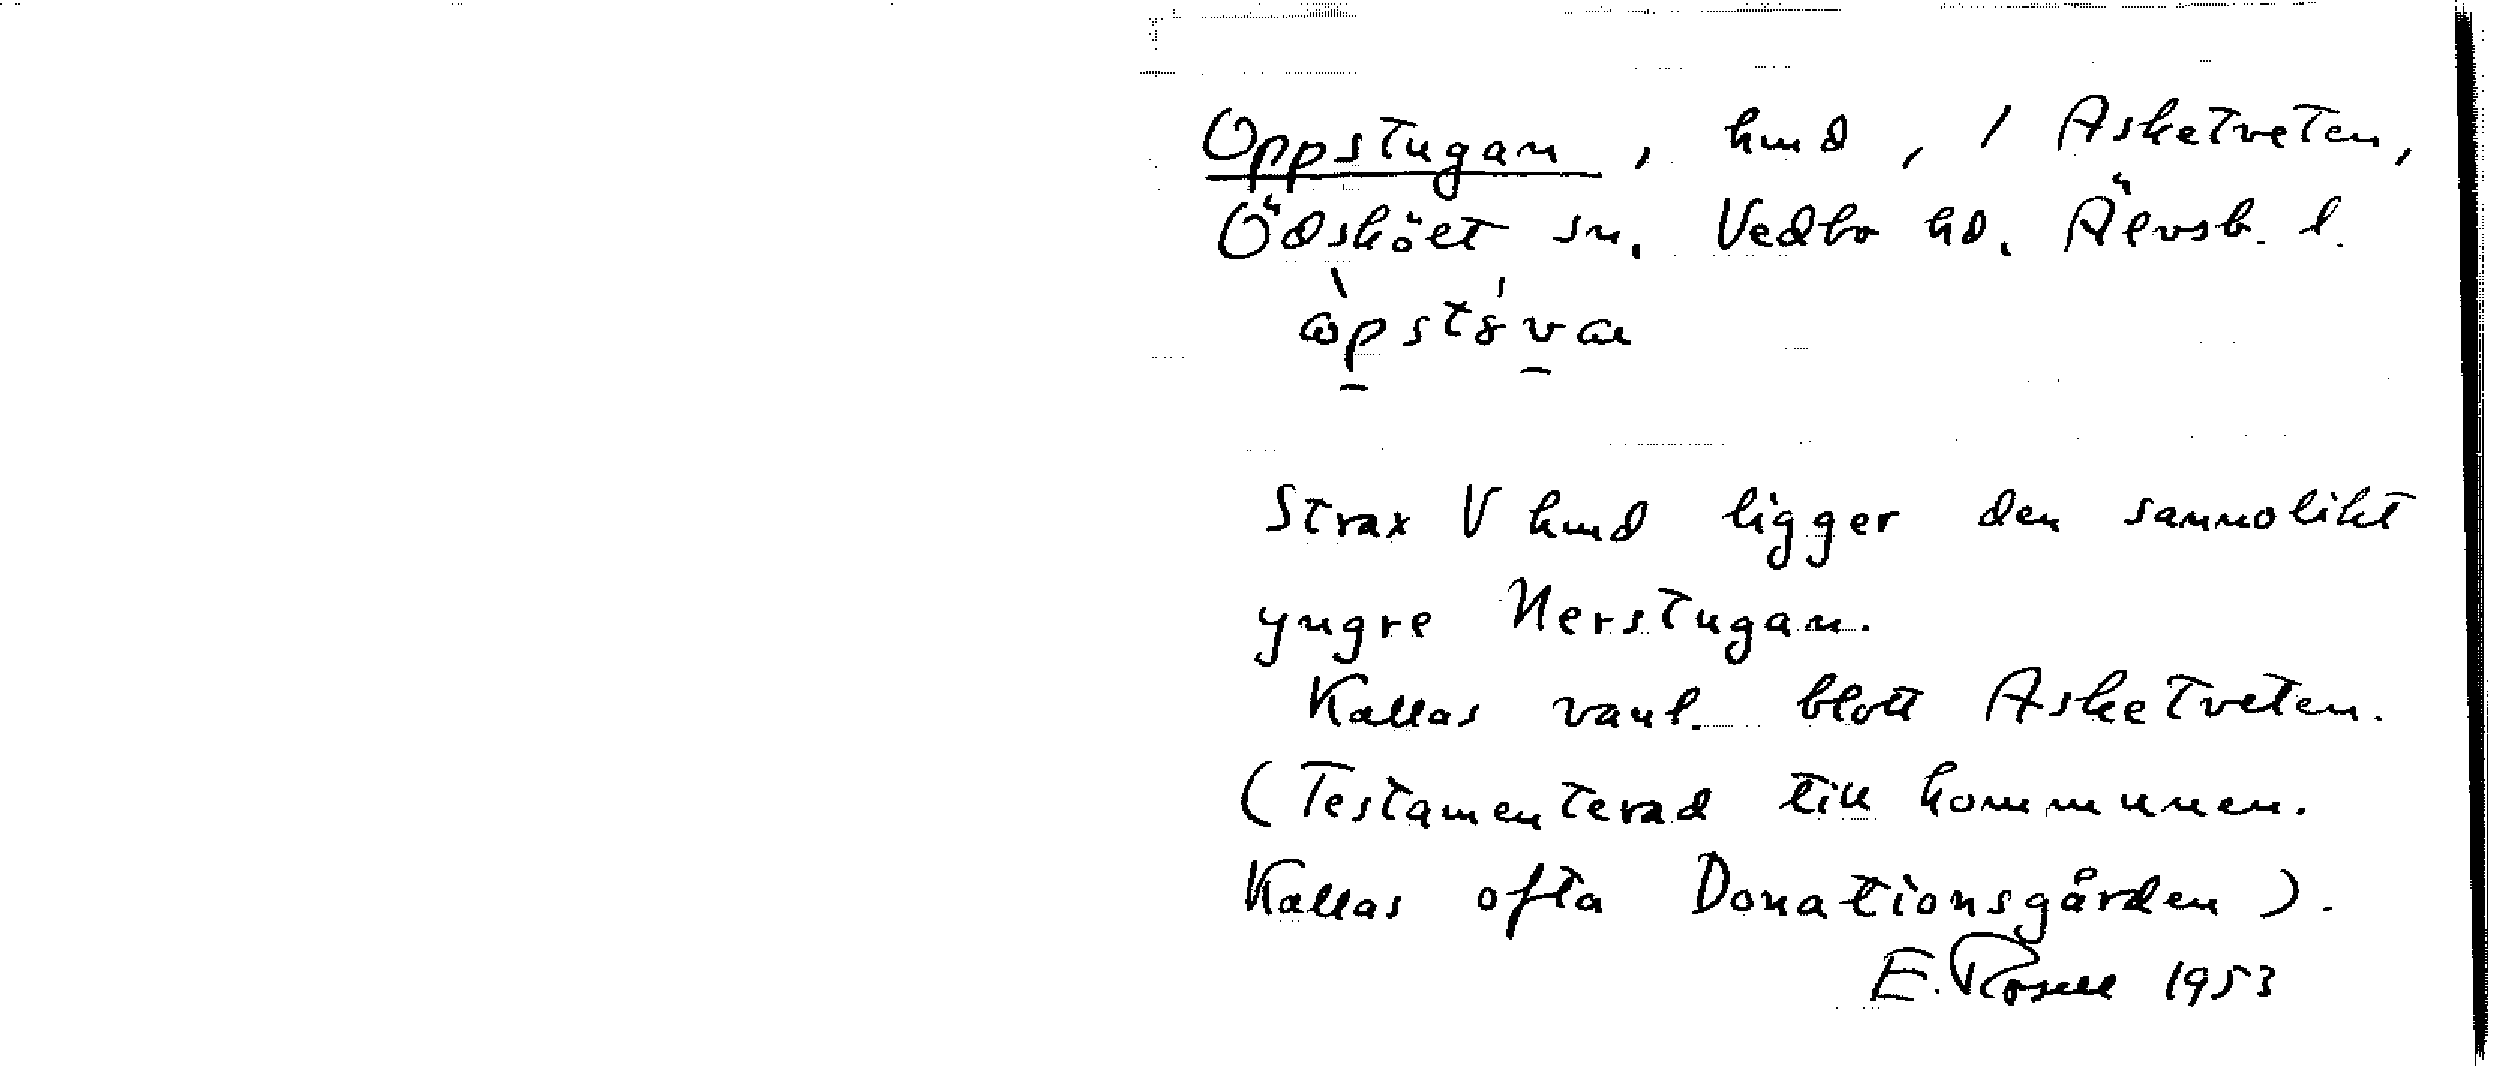 Oppstugan, hmd, / Asketveten,
Ödsköet sn. Vedbo hd. Älvsb. l.
Strax V hmd ligger den sannolikt
yngre Nerstugan.
Kallas vanl. blott Asketveten.
(Testamenterad till kommunen.
Kallas ofta Donationsgården).
E. Rosell 1953